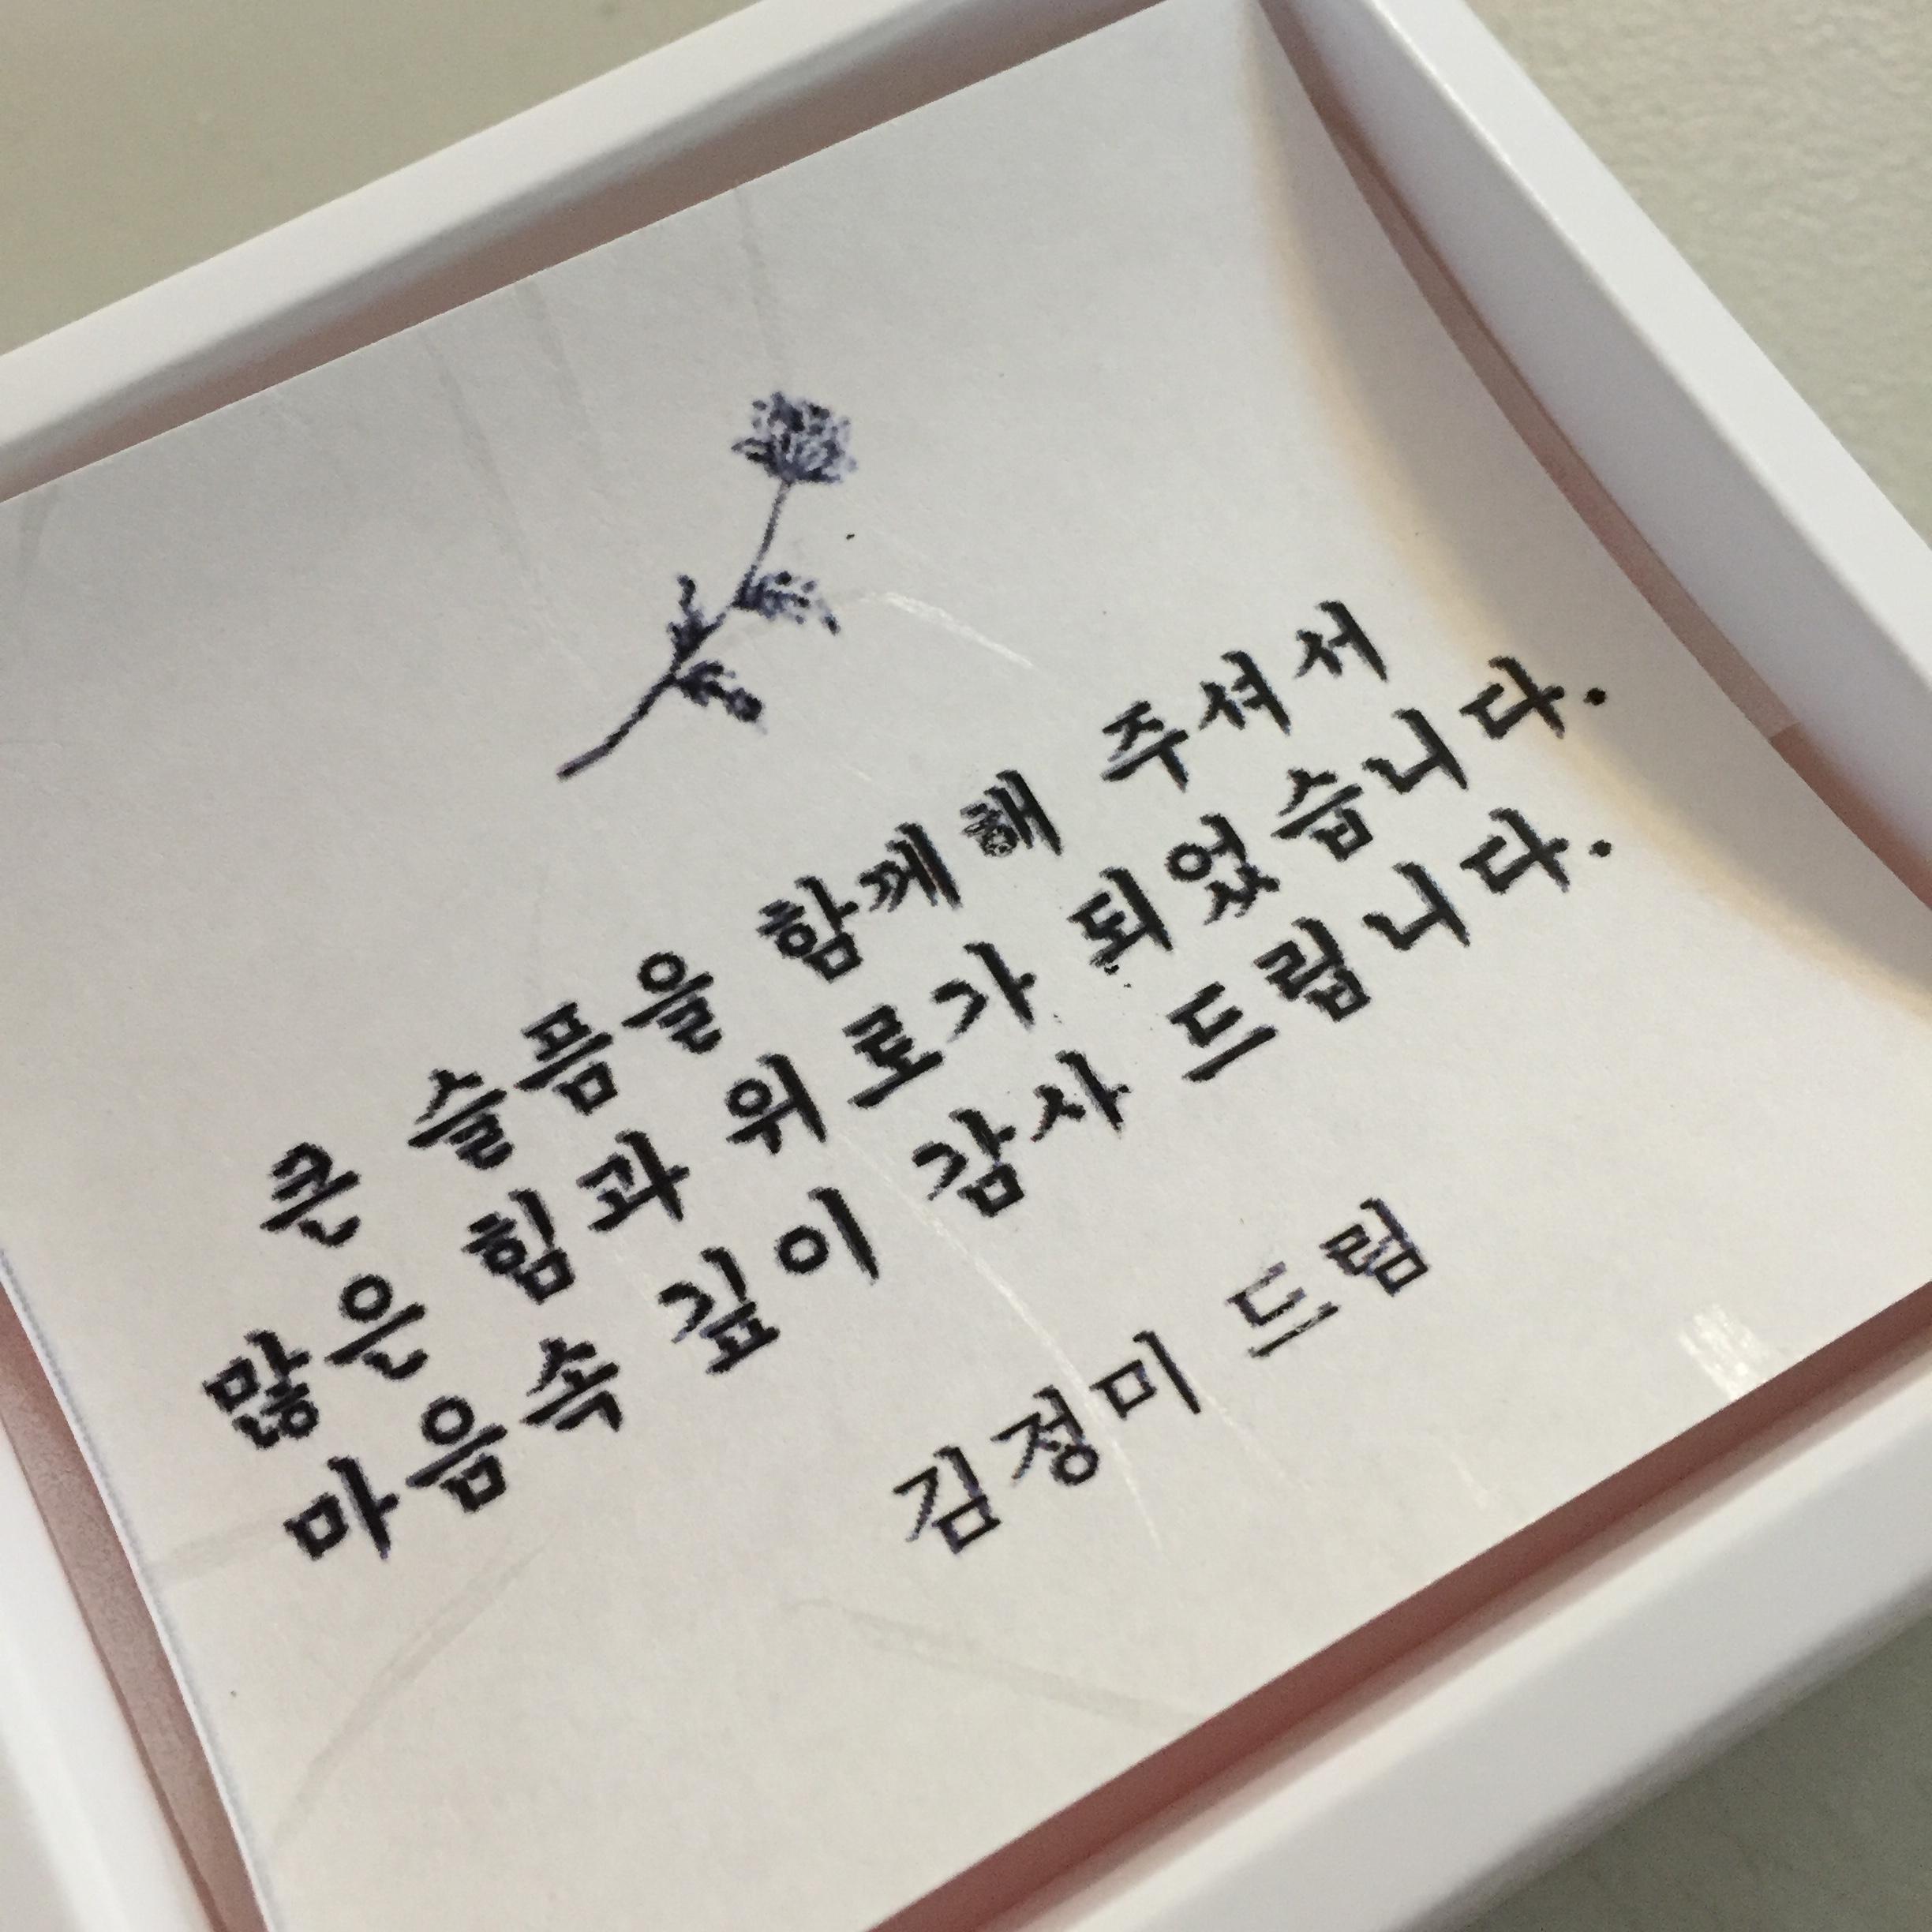 큰 슬픔을 함께해 주셔서
많은 힘과 위로가 되었습니다.
마음속 깊이 감사 드립니다.
김정미 드림